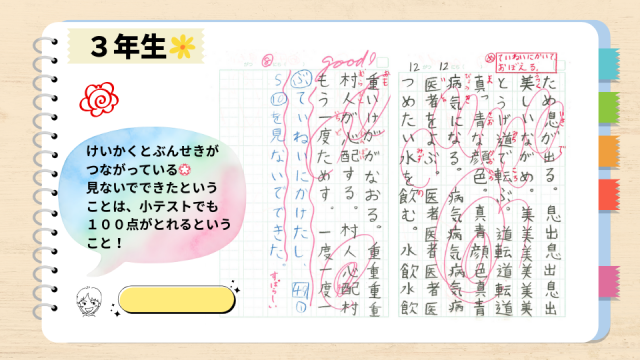 ３年生
けいかくとぶんせきが
つながっている
見ないでできたという
ことは、小テストでも
１００点がとれるという
こと！
ていねいにかいて、
おぼえる。
12 12
ため息が出る。息出息出息出
美しいながめ。美美美美美美
とうげ道で転ぶ。道転道転道転
真っ青な顔色。真青顔色真青
病気になる。病気病気病気病
医者をよぶ。医者医者医者医者
つめたい水を飲む。水飲水飲
good!
重いけががなおる。重重重重
村人が心配する。村人心配村
もう一度ためす。一度一度一
ぶていねいにかけたし、
5⑫を見ないでできた。
すばらしい